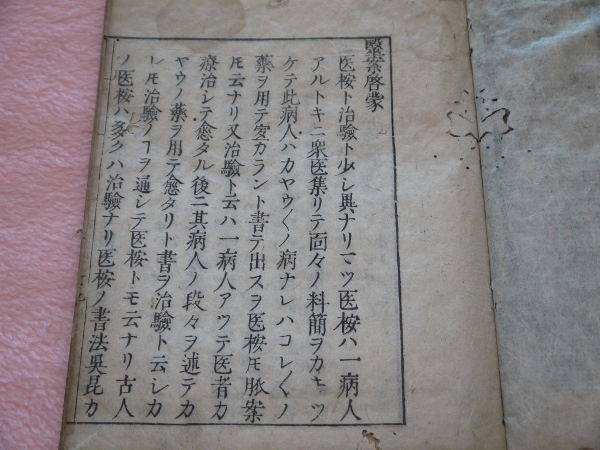 醫案啓蒙
医桉ト治驗ト少シ異ナリマツ医桉ハ一病人
アルトキニ衆医集リテ面々ノ料簡ヲカキツ
ケテ此病人ハカヤウ〱ノ病ナレハコレ〱ノ
藥ヲ用テ宜カラント書テ出スヲ医桉𪜈脉案
𪜈云ナリ又治驗ト云ハ一病人アツテ医者カ
療治シテ愈タル後ニ其病人ノ段々ヲ述テカ
ヤウノ藥ヲ用テ愈タリト書ヲ治驗ト云シカ
レ𪜈治驗ノヿヲ通シテ医桉トモ云ナリ古人
ノ医桉ハ多クハ治驗ナリ医桉ノ書法吳昆カ